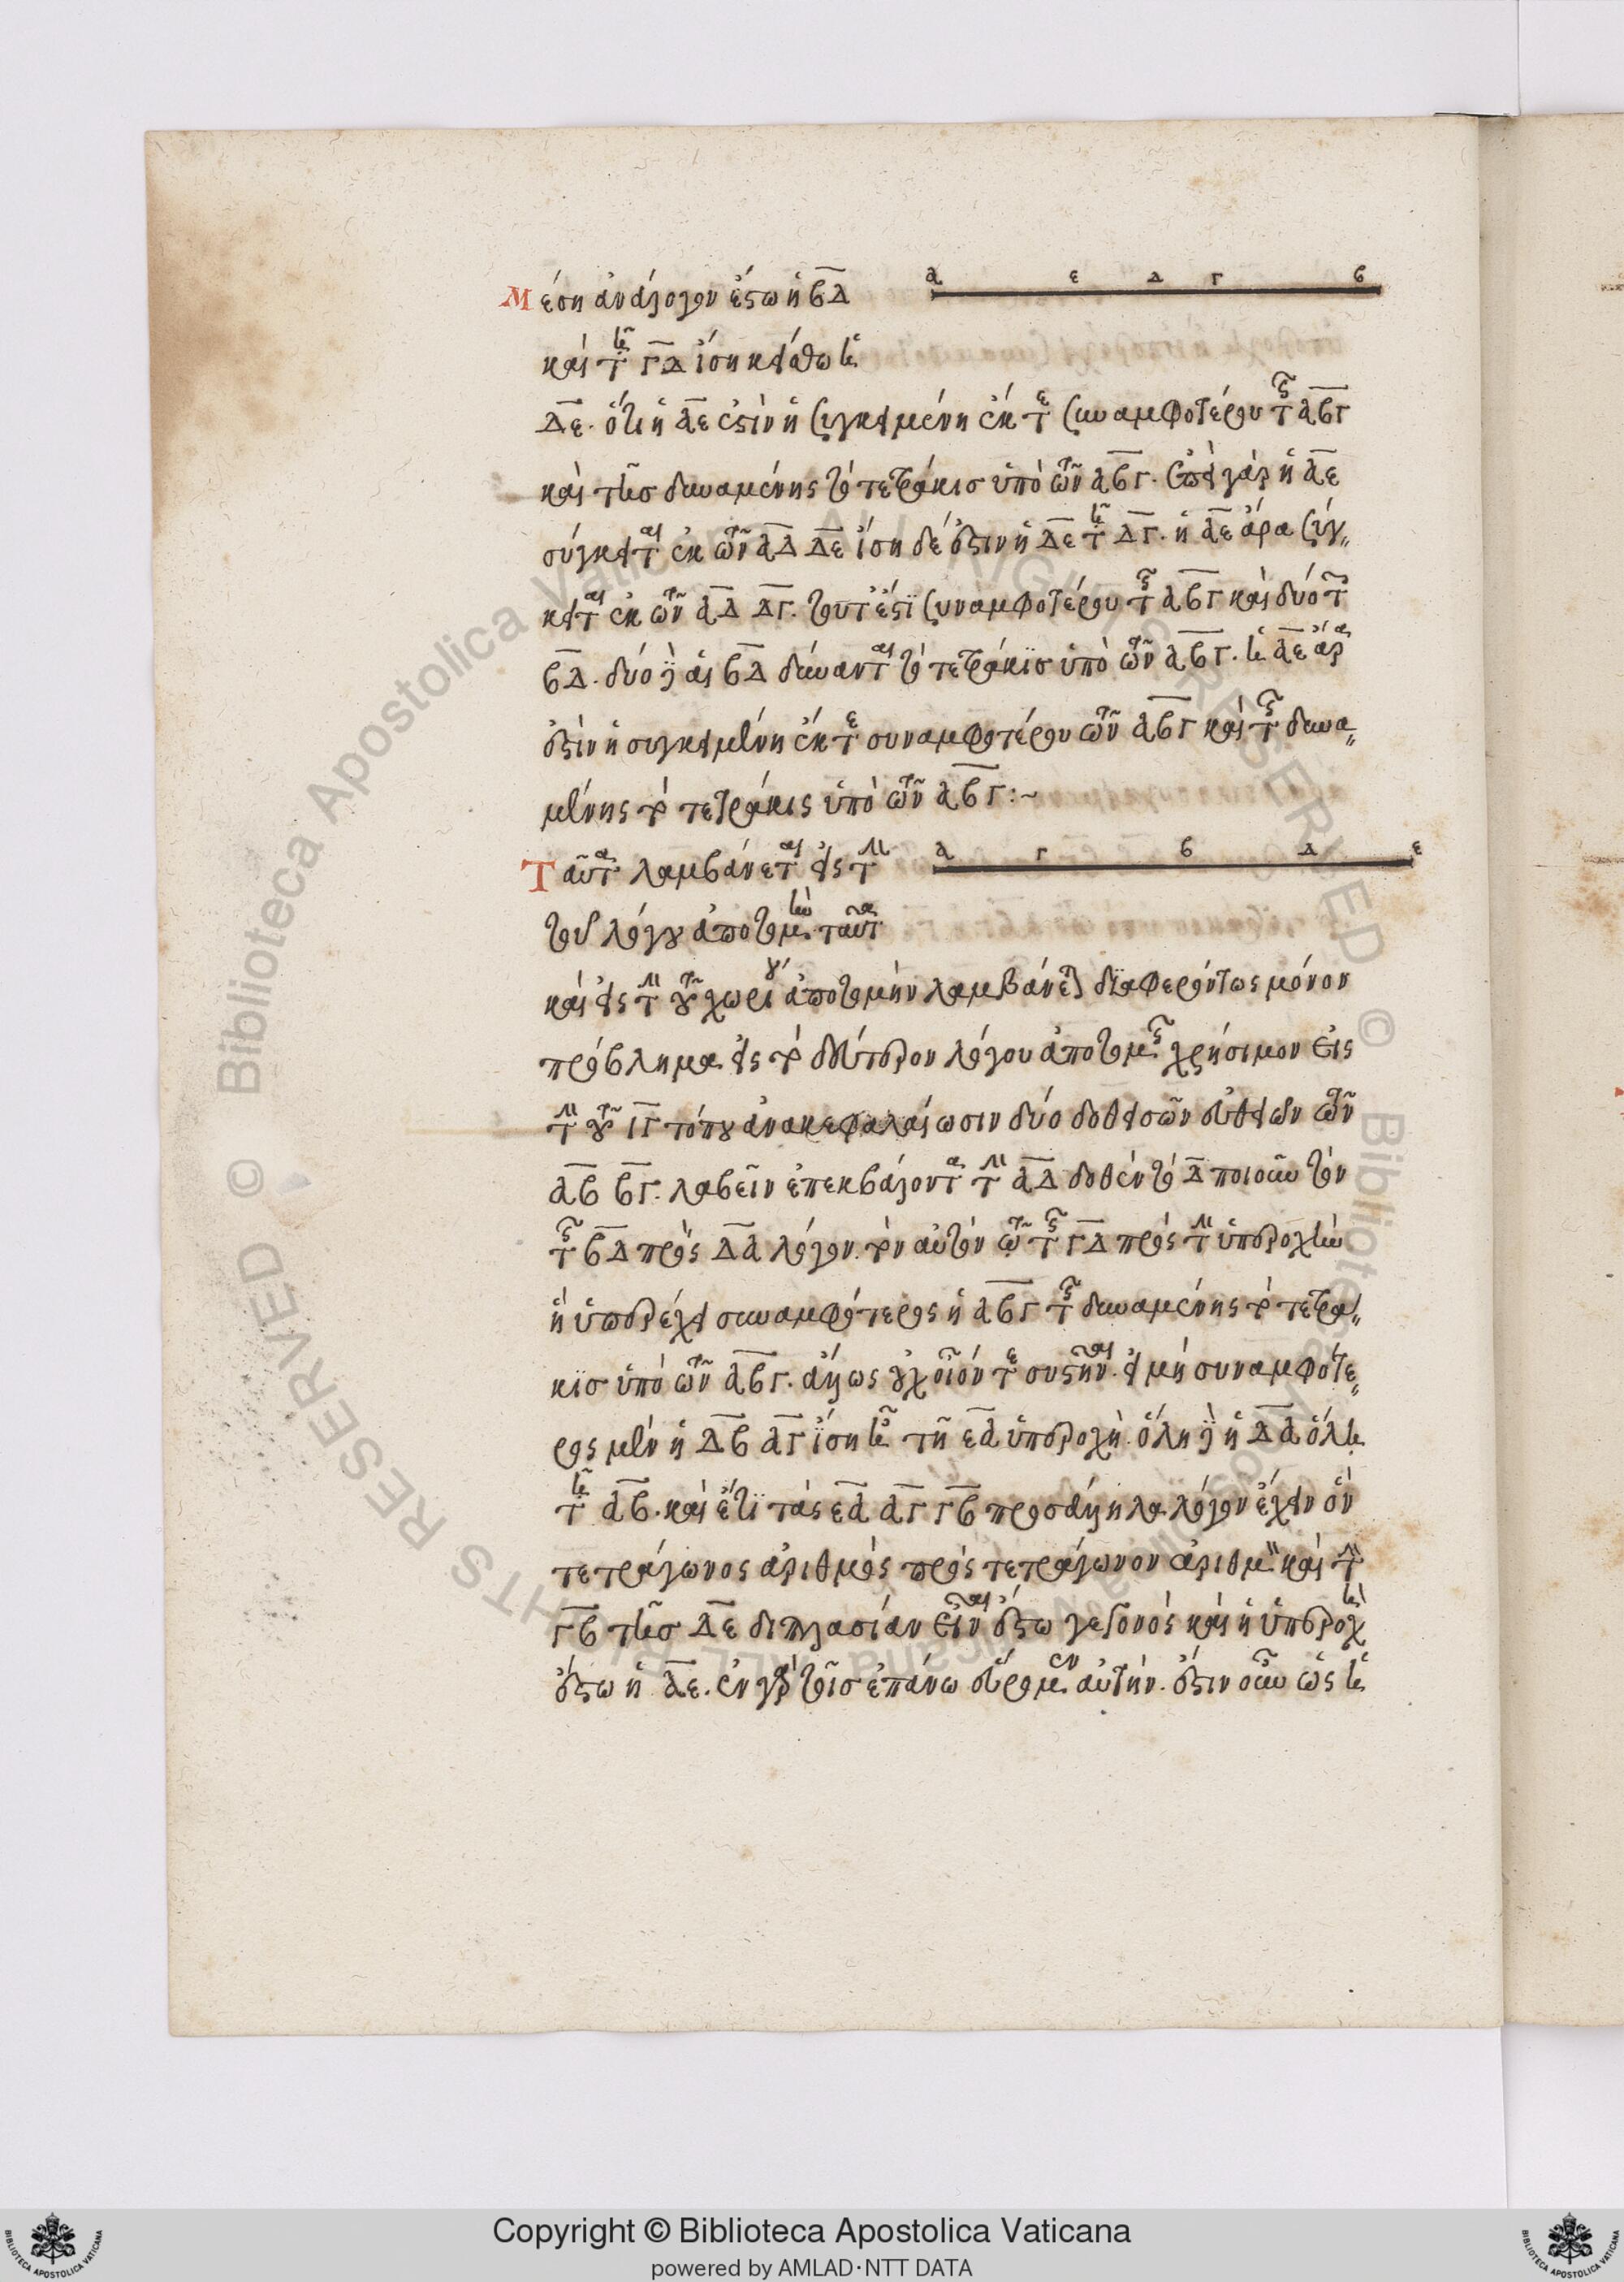 α ε δ γ β
Μέση ἀνάλογον ἔστω ἡ ΒΔ
καὶ τῇ ΓΔ ἴση κείσθω ἡ
ΔΕ. ὅτι ἡ ΑΕ ἐστὶν ἡ συγκειμένη ἐκ τε συναμφοτέρου τῆς ΑΒΓ
καὶ τῆς δυναμένης τὸ τετράκις ὑπὸ τῶν ΑΒΓ. ἐπεὶ γὰρ ἡ ΑΕ
σύγκειται ἐκ τῶν ΑΔ ΔΕ ἴση δέ ἐστιν ἡ ΔΕ τῇ ΔΓ. ἡ ΑΕ ἄρα σύγ„
κειται ἐκ τῶν ΑΔ ΔΓ. τουτέστι συναμφοτέρου τῆς ΑΒΓ καὶ δύο τῶν
ΒΔ. δύο δὲ αἱ ΒΔ δύνανται τὸ τετράκις ὑπὸ τῶν ΑΒΓ. ἡ ΑΕ ἄρα
ἐστὶν ἡ συγκειμένη ἐκ τε συναμφοτέρου τῶν ΑΒΓ καὶ τῆς δυνα„
μένης τὸ τετράκις ὑπὸ τῶν ΑΒΓ:~
α γ β δ ε
Ταῦτα λαμβάνεται εἰς τὴν
τοῦ λόγου ἀποτομήν. ταῦτα
καὶ εἰς τὴν τοῦ χωρίου ἀποτομὴν λαμβάνεται διαφερόντως μόνον
πρόβλημα εἰς τὸ δεύτερον λόγου ἀποτομῆς χρήσιμον εἰς
τὴν τοῦ ΙΓ τόπου ἀνακεφαλαίωσιν δύο δοθεισῶν εὐθειῶν τῶν
ΑΒ ΒΓ. λαβεῖν ἐπεκβάλοντα τὴν ΑΔ δοθὲν τὸ Δ ποιοῦν τὸν
τῆς ΒΔ πρὸς ΔΑ λόγον. τὸν αὐτὸν τῷ τῆς ΓΔ πρὸς τὴν ὑπεροχὴν
ᾗ ὑπερέχει συναμφότερος ἡ ΑΒΓ τῆς δυναμένης τὸ τετρά„
κις ὑπὸ τῶν ΑΒΓ. ἄλλως οὐχ οἷόν τε συστῆναι. εἰ μὴ συναμφότε„
ρος μὲν ἡ ΔΒ ΑΓ ἴση ᾖ τῇ ΕΑ ὑπεροχῇ. ὅλη δὲ ἡ ΔΑ ὅλη
τῇ ΑΒ. καὶ ἔτι τὰς ΕΑ ΑΓ ΓΒ προσάλληλα λόγον ἔχειν ὃν
τετράγωνος ἀριθμὸς πρὸς τετράγωνον ἀριθμὸν καὶ τὴν
ΓΒ τῆς ΔΕ διπλασίαν εἶναι ἔστω γεγονὸς καὶ ἡ ὑπεροχὴ
ἔστω ἡ ΑΕ. ἐν γὰρ τοῖς ἐπάνω εὕρομεν αὐτήν. ἔστιν οὖν ὡς ἡ
Copyright © Biblioteca Apostolica Vaticana
powered by AMLAD·NTT DATA